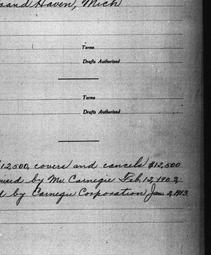 and Haven, Mich
Terms
Drafts Authorized
Terms
Drafts Authorized
12500, covers and cancels $12,500
by Mr. Carnegie Feb. 12, 1902
d by Carnegie Corporation Jan 2, 1913.